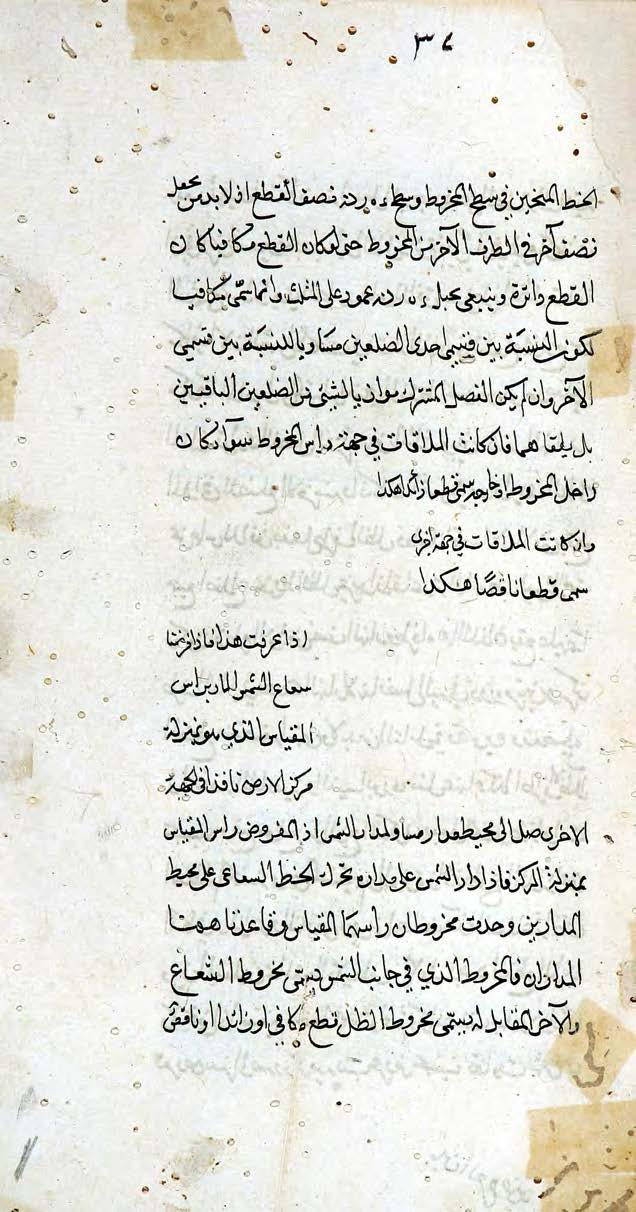 ٣٧
الخط المنحنى في سطح المخروط وسطح ه ر د ه نصف القطع اذ لا بد من
نصف آخر في الطرف الآخر من المخروط حتى لو كان القطع مكافيا كان
القطع دائرة وينبغى ه ر د ه عمود على المثلث وانما سمى مكافيا
لكون النسبة بين قسيمى احدى الضلعين مساويا للنسبة بين قسيمى
الآخر وان لم يكن الفصل المشترك موازيا لشئ من الضلعين الباقيين
بل يلقاهما فان كانت الملاقات في جهة راس المخروط سواء كان
داخل المخروط او خارجه سمى قطعا زائدا هكذا
وان كانت الملاقات في جهة اخرى
سمى قطعا ناقصًا هكذا
اذا عرفت هذا فاذا فرضنا
شعاع الشمس المار براس
المقياس الذي هو بمنزلة
مركز الارض نافذا في الجهة
الاخرى صل الى محيط مدار مساو لمدار الشمس اذ المفروض راس المقياس
بمنزلة المركز فاذا دار الشمس على مداره تحرك الخط الشعاعى على محيط
المدارين وحدث مخروطان راسهما المقياس وقاعدتاهما
المداران فالمخروط الذي في جانب الشمس يسمى مخروط الشعاع
والآخر المقابل له يسمى مخروط الظل قطع مكافي او زائدا او ناقص